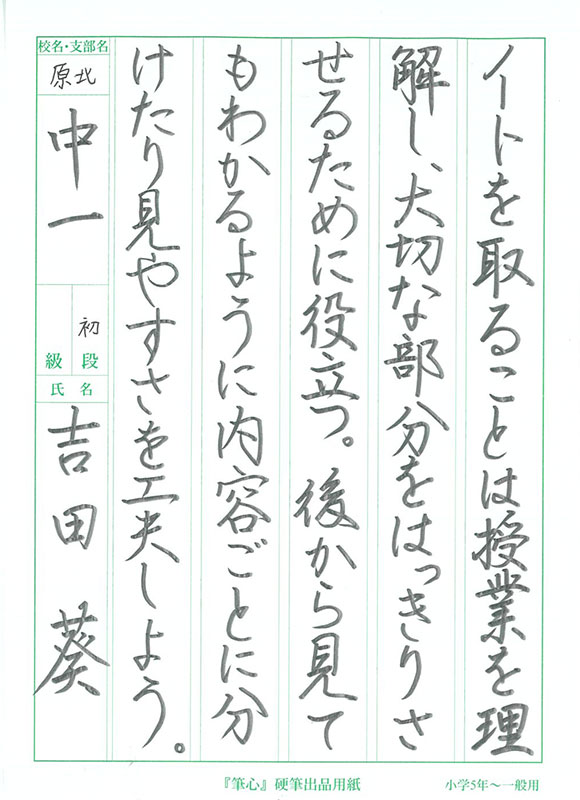 ノートを取ることは授業を理
解し、大切な部分をはっきりさ
せるために役立つ。後から見て
もわかるように内容ごとに分
けたり見やすさを工夫しよう。
校名・支部名
原北
中一
初
段
級
氏名
吉田葵
『筆心』硬筆出品用紙
小学5年〜一般用